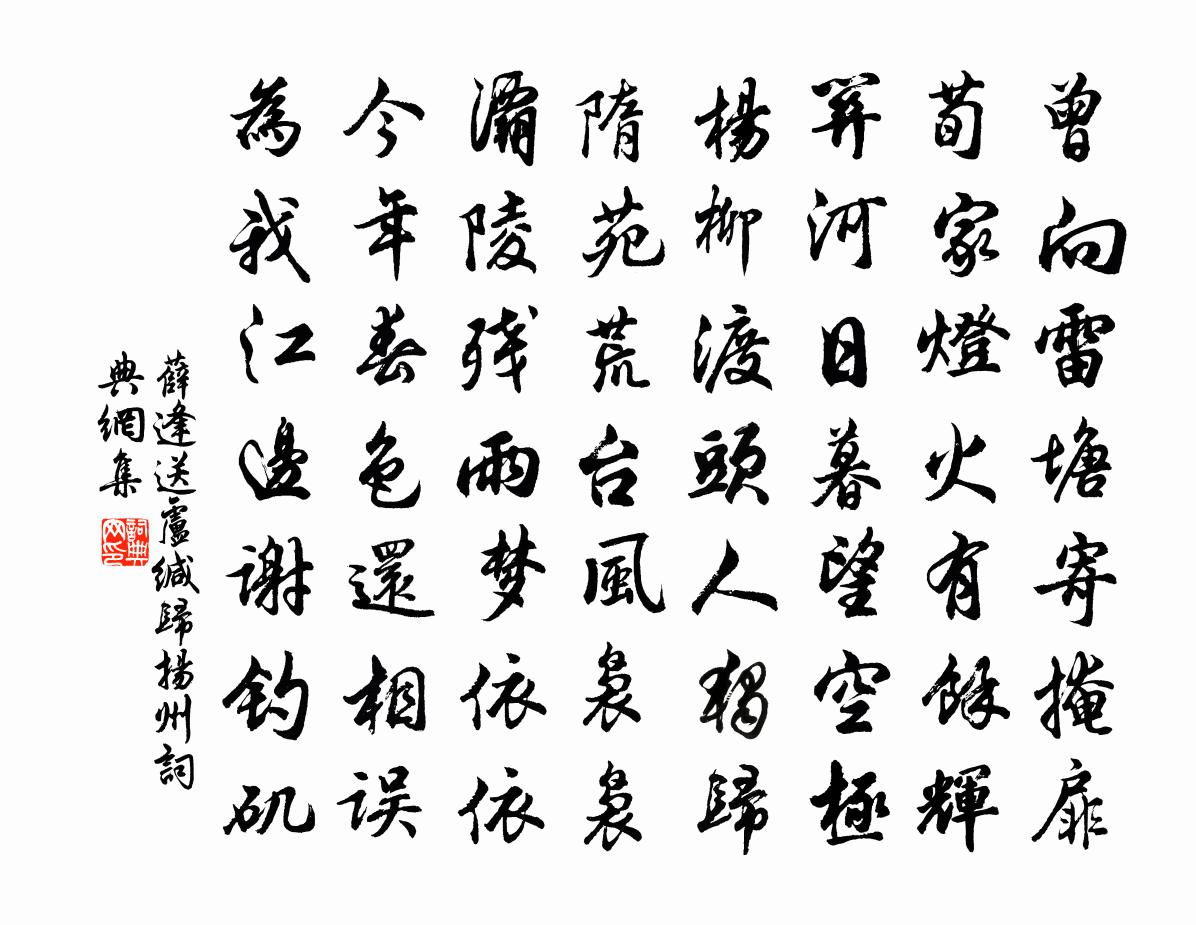 曾向雷塘寄掩扉
荀家燈火有餘輝
關河日暮望空極
楊柳渡頭人獨歸
隋苑荒台風裊裊
灞陵残雨梦依依
今年春色還相誤
為我江邊謝釣矶
薛逢送盧緘歸揚州詞
典網集
詞典网印